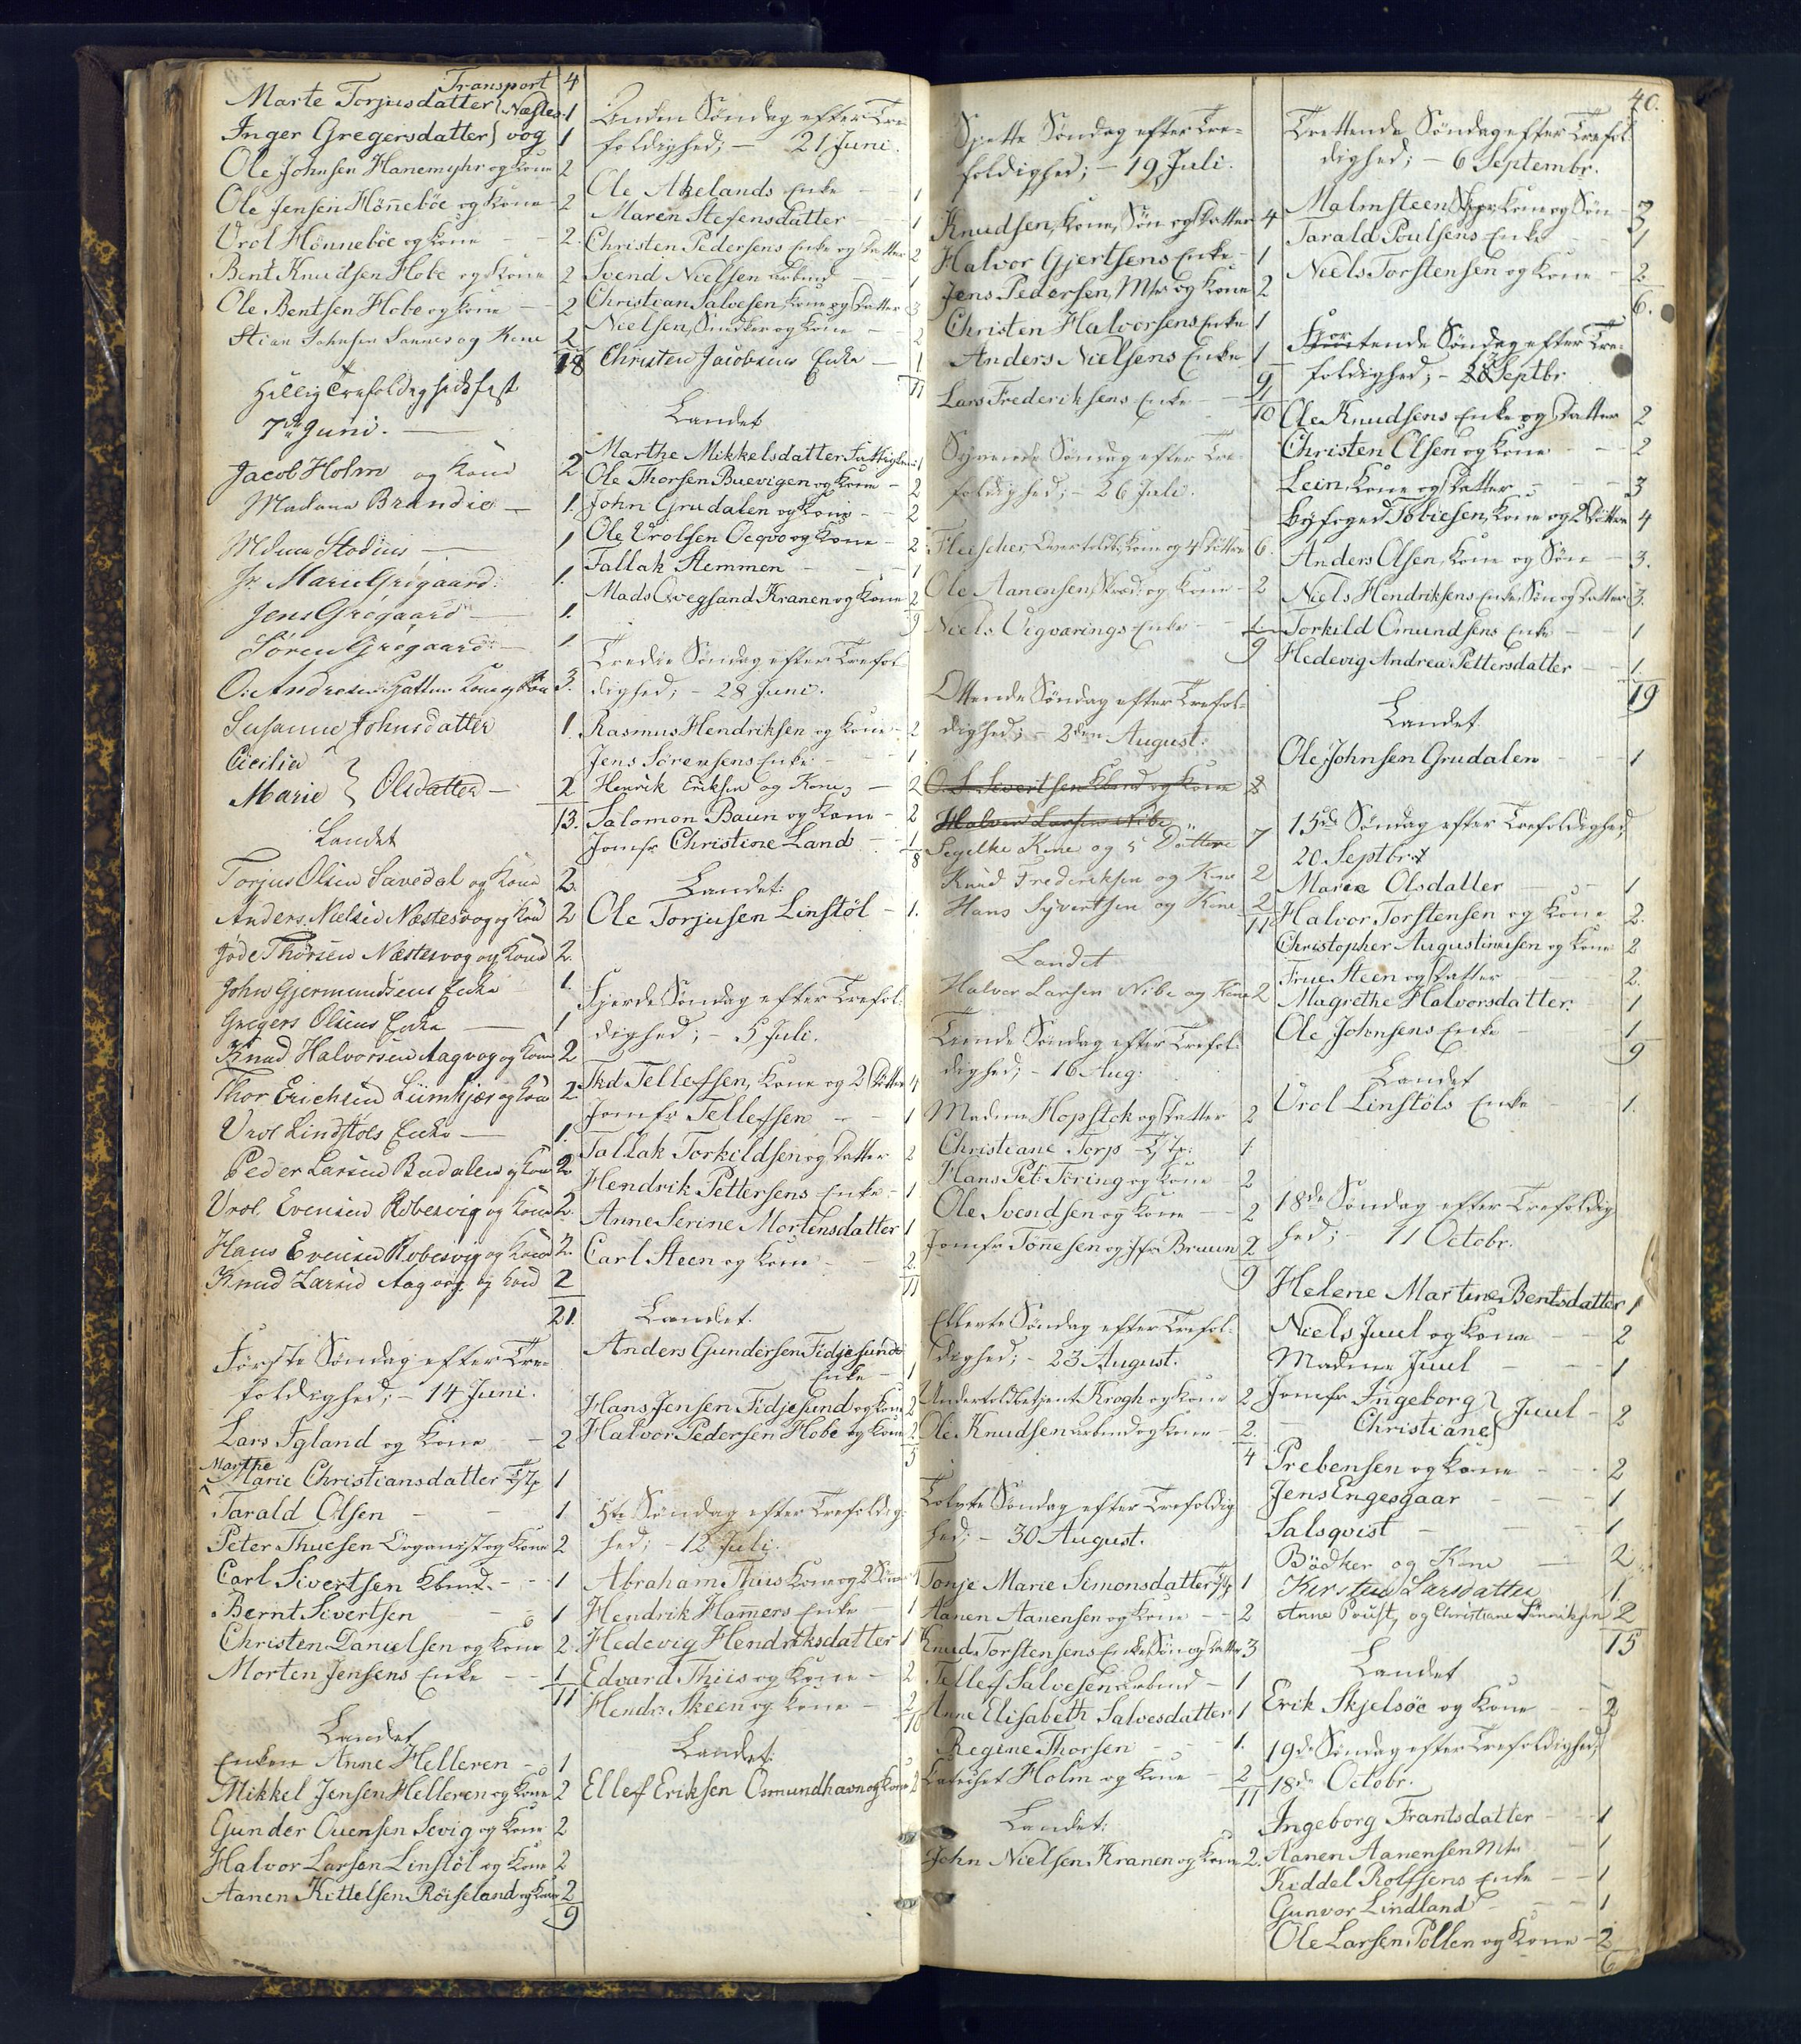 Transport 4
Marte Torjusdatter } Næstes 1
Inger Gregersdatter } vog 1
Ole Johnsen Hanemyhr og Kone 2
Ole Jensen Hönneböe og Kone 2
Urol Hönneböe og Kone - - 2.
Bent Knudsen Hobe og Kone 2
Ole Bentsen Hobe og Kone - 2
Stian Johnsen Sannes og Kone 2
18
Hellig Trefoldigheds fest
7de Juni. -
Jacob Holm og Kone 2
Madame Brandie - 1.
Mdme Stodius - 1
Jr. Marie Grögaard 1.
Jens Grögaard - 1.
Sören Grögaard - 1
O. Andresen Kone og 3.
Susanne Johnsdatter 1.
Cicilia }
Marie } Olsdatter - 2
13.
Landet
Torjus Olsen Savedal og Kone 2.
Anders Nielsen Næstesvog og Kone 2
Jöde Thorsen Næstesvog og Kone 2.
John Gjermundsens Enke 1.
Gregers Olsens Enke - 1
Knud Halvorsen Aagvog og Kone 2
Thor Erichsen Liimkjær og Kone 2.
Urol Lindstöls Enke - 1.
Peder Larsen Budalen og Kone 2.
Urol Evensen Robesvig og Kone 2.
Hans Evensen Robesvig og Kone 2.
Knud Larsen Aagvog og Kone 2
21.
Förste Söndag efter Tre-
foldighed; - 14 Juni.
Lars Igland og Kone - 2
Marthe
Marie Christiansdatter T/Tp 1
Tarald Olsen - - 1
Peter Thuesen Organist og Kone 2
Carl Sivertsen Kbmd. - - 1
Bernt Sivertsen - - 1
Christen Danielsen og Kone 2.
Morten Jensens Enke - - 1
11
Landet
Enken Anne Helleren - 1
Mikkel Jensen Helleren og Kone 2
Gunder Ouensen Sevig og Kone 2
Halvor Larsen Linstöl og Kone 2
Aanen Kittelsen Röiseland og Kone 2
9
Anden Söndag efter Tre-
foldighed; - 21 Juni.
Ole Akelands Enke - - 1
Maren Stefensdatter - - 1
Christen Pedersens Enke og Datter 2
Svend Nielsen arbmd - - 1
Christian Salvesen, Kone og Datter 3
Nielsen, Snedker og Kone - - 2
Christen Jacobsens Enke - 1
11
Landet
Marthe Mikkelsdatter Fattiglem 1
Ole Thorsen Buevigen og Kone - 2
John Grudalen og Kone - - 2
Ole Urolsen Ocqvo og Kone - 2
Tallak Stemmen - - - 1
Mads Qvegsand Kranen og Kone 2
9
Tredie Söndag efter Trefol-
dighed; - 28 Juni.
Rasmus Hendriksen og Kone - 2
Jens Sörensens Enke - - 1
Henrik Eriksen og Kone, - 2
Salomon Baun og Kone - 2
Jomfr Christine Land - - 1
8
Landet:
Ole Torjusen Linstöl - 1.
Fjerde Söndag efter Trefol-
dighed; - 5 Juli.
Tkd. Tellefsen, Kone og 2 Döttre 4
Jomfr Tellefsen - - 1
Tallak Torkildsen og Datter 2
Hendrik Pettersens Enke - 1
Anne Serine Mortensdatter 1
Carl Steen og Kone - - 2.
11
Landet.
Anders Gundersen Tidjesunds
Enke - 1
Hans Jensen Tidjesund og Kone 2
Halvor Pedersen Hobe og Kone 2
5
5te Söndag efter Trefoldig-
hed; - 12 Juli.
Abraham Thiis Kone og 2 Sönner
Hendrik Hamers Enke - 1
Hedevig Hendriksdatter 1
Edvard Thiis og Kone - 2
Hendr. Skeen og Kone - 2
10
Landet:
Ellef Eriksen Osmundhavn og Kone 2
Sjette Söndag efter Tre-
foldighed; - 19 Juli.
Knudsen, Kone, Sön og Datter 4
Halvor Gjertsens Enke - 1
Jens Pedersen, Mtr og Kone 2
Christen Halvorsens Enke 1
Anders Nielsens Enke 1
9
Lars Frederiksens Enke - 1
10
Syvende Söndag efter Tre-
foldighed; - 26 Juli.
Fleischer Overtoldb. Kone og 4 Döttre 6.
Ole Aanensen, Skræd. og Kone - 2
Niels Vigvarings Enke - - 1
9
Ottende Söndag efter Trefol-
dighed; - 2den August.
O. S. Sivertsen Kbmd og Kone 2
Halvor Larsen Nibe
Segelke Kone og 5 Döttre 7
Knud Frederiksen og Kone 2
Hans Syvertsen og Kone 2
11
Landet
Halvor Larsen Nibe og Kone 2
Tiende Söndag efter Trefol-
dighed; - 16 Aug.
Madme Hopstok og Datter 2
Christiane Torp T/Tp: 1.
Hans Pet: Töring og Kone - 2
Ole Svendsen og Kone - - 2
Jomfr Tönnesen og Jfr Bruun 2
9
Ellevte Söndag efter Trefol-
dighed; - 23 August.
Undertoldbetjent Krogh og Kone 2
Ole Knudsen arbmd og Kone - 2.
4
Tolvte Söndag efter Trefoldig-
hed; - 30 August.
Tonje Marie Simonsdatter T/Tp 1
Aanen Aanensen og Kone - - 2
Knud Torstensens Enke Sön og Datter 3
Tellef Salvesen Arbmd - 1
Anne Elisabeth Salvesdatter 1
Regine Thorsen - - 1.
Catechet Holm og Kone - 2
11
Landet:
John Nielsen Kranen og Kone 2.
40.
Trettende Söndag efter Trefol-
dighed; - 6 Septembr.
Malmsteen Skppr, Kone og Sön - 3
Tarald Poulsens Enke 1
Niels Torstensen og Kone - 2.
6.
Fjortende Söndag efter Tre-
foldighed; - 13 Septbr
Ole Knudsens Enke og Datter 2
Christen Olsen og Kone - - 2
Lein, Kone og Datter - - 3
Byfoged Tobiesen, Kone og 2 Döttre 4
Anders Olsen, Kone og Sön - 3.
Niels Hendriksens Enke, Sön og Datter 3.
Torkild Omundsens Enke - 1
Hedevig Andrea Pettersdatter - 1.
19
Landet.
Ole Johnsen Grudalen - - 1
15de Söndag efter Trefoldighed
20 Septbr.
Maren Olsdatter - - 1
Halvor Torstensen og Kone 2.
Christopher Augustinusen og Kone 2
Frue Steen og Datter - - 2.
Magrethe Halvorsdatter. 1
Ole Johnsens Enke - 1
9
Landet
Urol Linstöls Enke - - 1.
18de Söndag efter Trefoldig-
hed; - 11 Octobr.
Helene Martine Bentsdatter 1
Niels Juul og Kone - - 2
Madme Juul - - 1
Jomfr Ingeborg }
Christiane } Juul - 2
Prebensen og Kone - - 2
Jens Engesgaar - - 1
Salsqvist - - - 1
Bödker og Kone - 2
Kirsten Larsdatter 1.
Anne Poust, og Christiane Hinriksen 2
15
Landet
Erik Skjelsöe og Kone - - 2
19de Söndag efter Trefoldighed;
18de Octobr.
Ingeborg Frantsdatter - - 1
Aanen Aanensen Mtr - 1
Kiddel Rolfsens Enke - - 1
Gunvor Lindland - - 1
Ole Larsen Pollen og Kone - 2
6